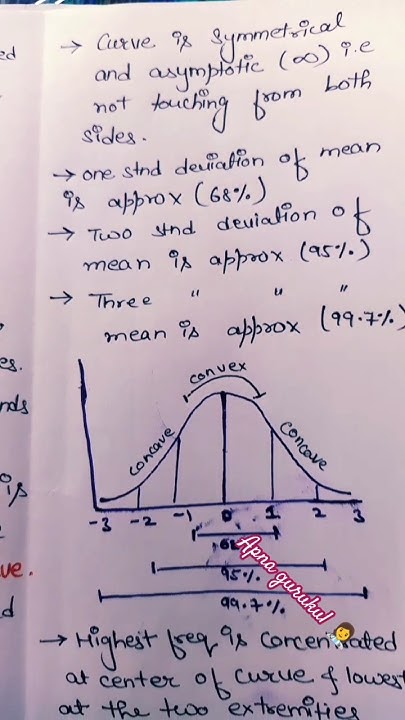 ed
→ Curve is symmetrical
and asymptotic (∞) i.e
not touching from both
sides.
→ one stnd deviation of mean
is approx (68%)
→ Two stnd deviation of
mean is approx (95%)
→ Three " " "
mean is approx (99.7%)
es.
nds
is
ue.
d
convex
concave
concave
-3 -2 -1 0 1 2 3
68
95%
99.7%
Apna gurukul
→ Highest freq is concentrated
at center of curve & lowest
at the two extremities